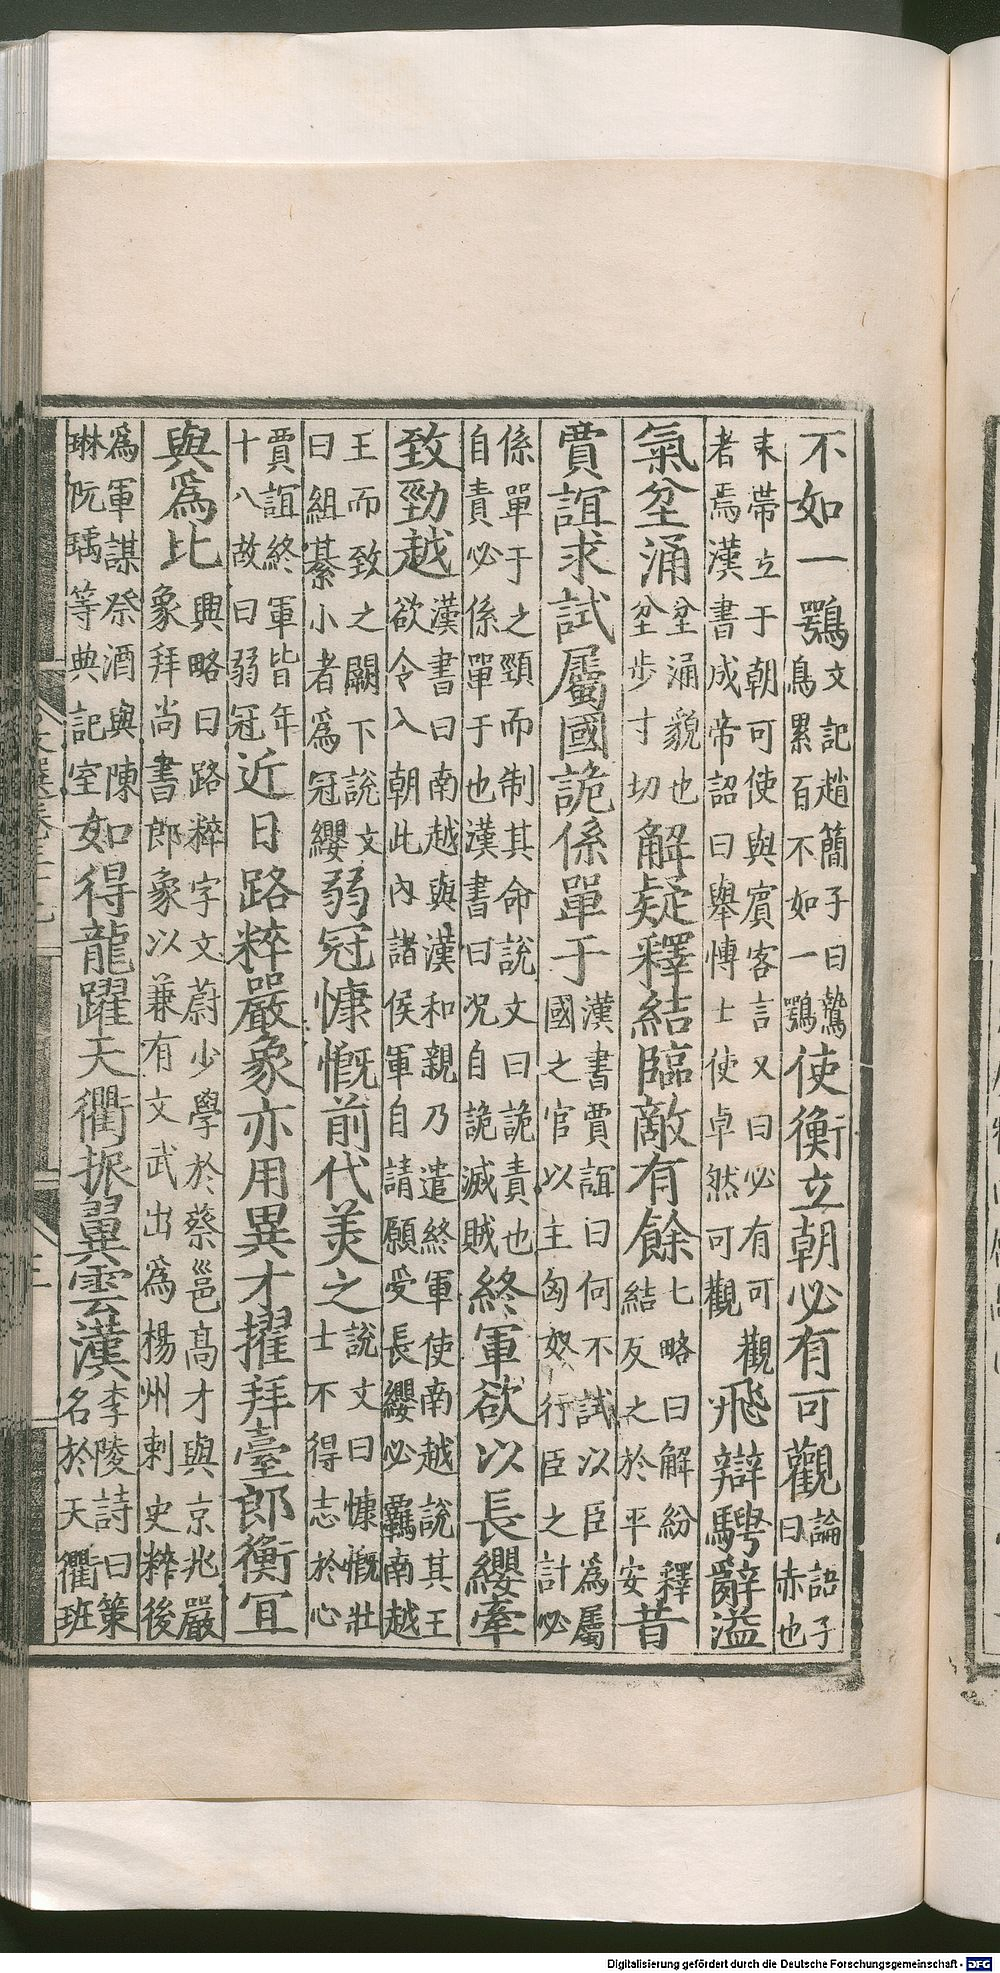 不如一鶚文記趙簡子曰鷙鳥累百不如一鶚使衡立朝必有可觀論語子曰赤也
束帶立于朝可使與賓客言又曰必有可觀者焉漢書成帝詔曰舉博士使卓然可觀飛辯騁辭溢
氣坌涌坌涌貌也坌步寸切解疑釋結臨敵有餘七略曰解紛釋結反之於平安昔
賈誼求試屬國詭係單于漢書賈誼曰何不試以臣爲屬國之官以主匈奴行臣之計必
係單于之頸而制其命說文曰詭責也自責必係單于也漢書曰况自詭滅賊終軍欲以長纓牽
致勁越漢書曰南越與漢和親乃遣終軍使南越說其王欲令入朝此內諸侯軍自請願受長纓必羈南越
王而致之闕下說文曰組綦小者爲冠纓弱冠慷慨前代美之說文曰慷慨壯士不得志於心
賈誼終軍皆年十八故曰弱冠近日路粹嚴象亦用異才擢拜臺郎衡宜
與爲比興略曰路粹字文蔚少學於蔡邕高才與京兆嚴象拜尚書郎象以兼有文武出爲楊州刺史粹後
爲軍謀祭酒與陳琳阮瑀等典記室如得龍躍天衢振翼雲漢李陵詩曰策名於天衢班
Digitalisierung gefördert durch die Deutsche Forschungsgemeinschaft - DFG